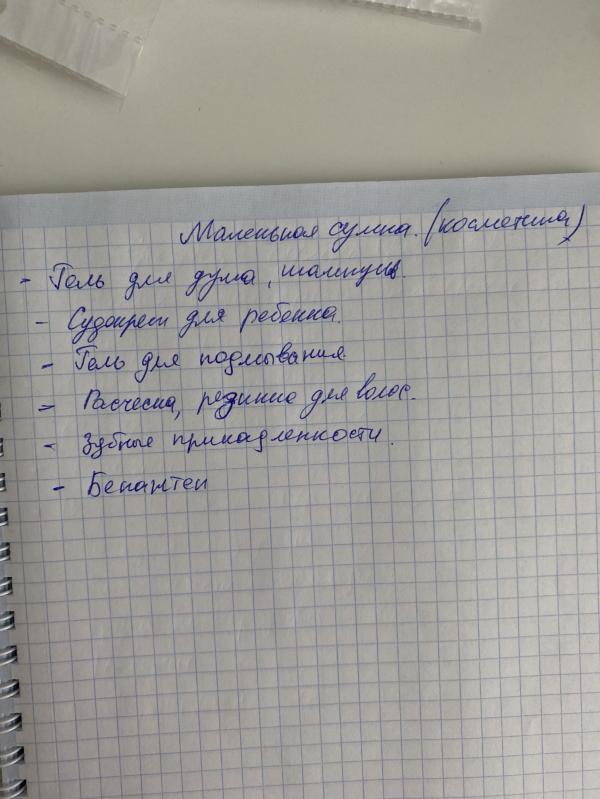 Маленькая сумка. (косметика)
- Гель для душа, шампунь.
- Судокрем для ребенка.
- Гель для подмывания.
- Расческа, резинке для волос.
- Зубные принадлежности.
- Бепантен